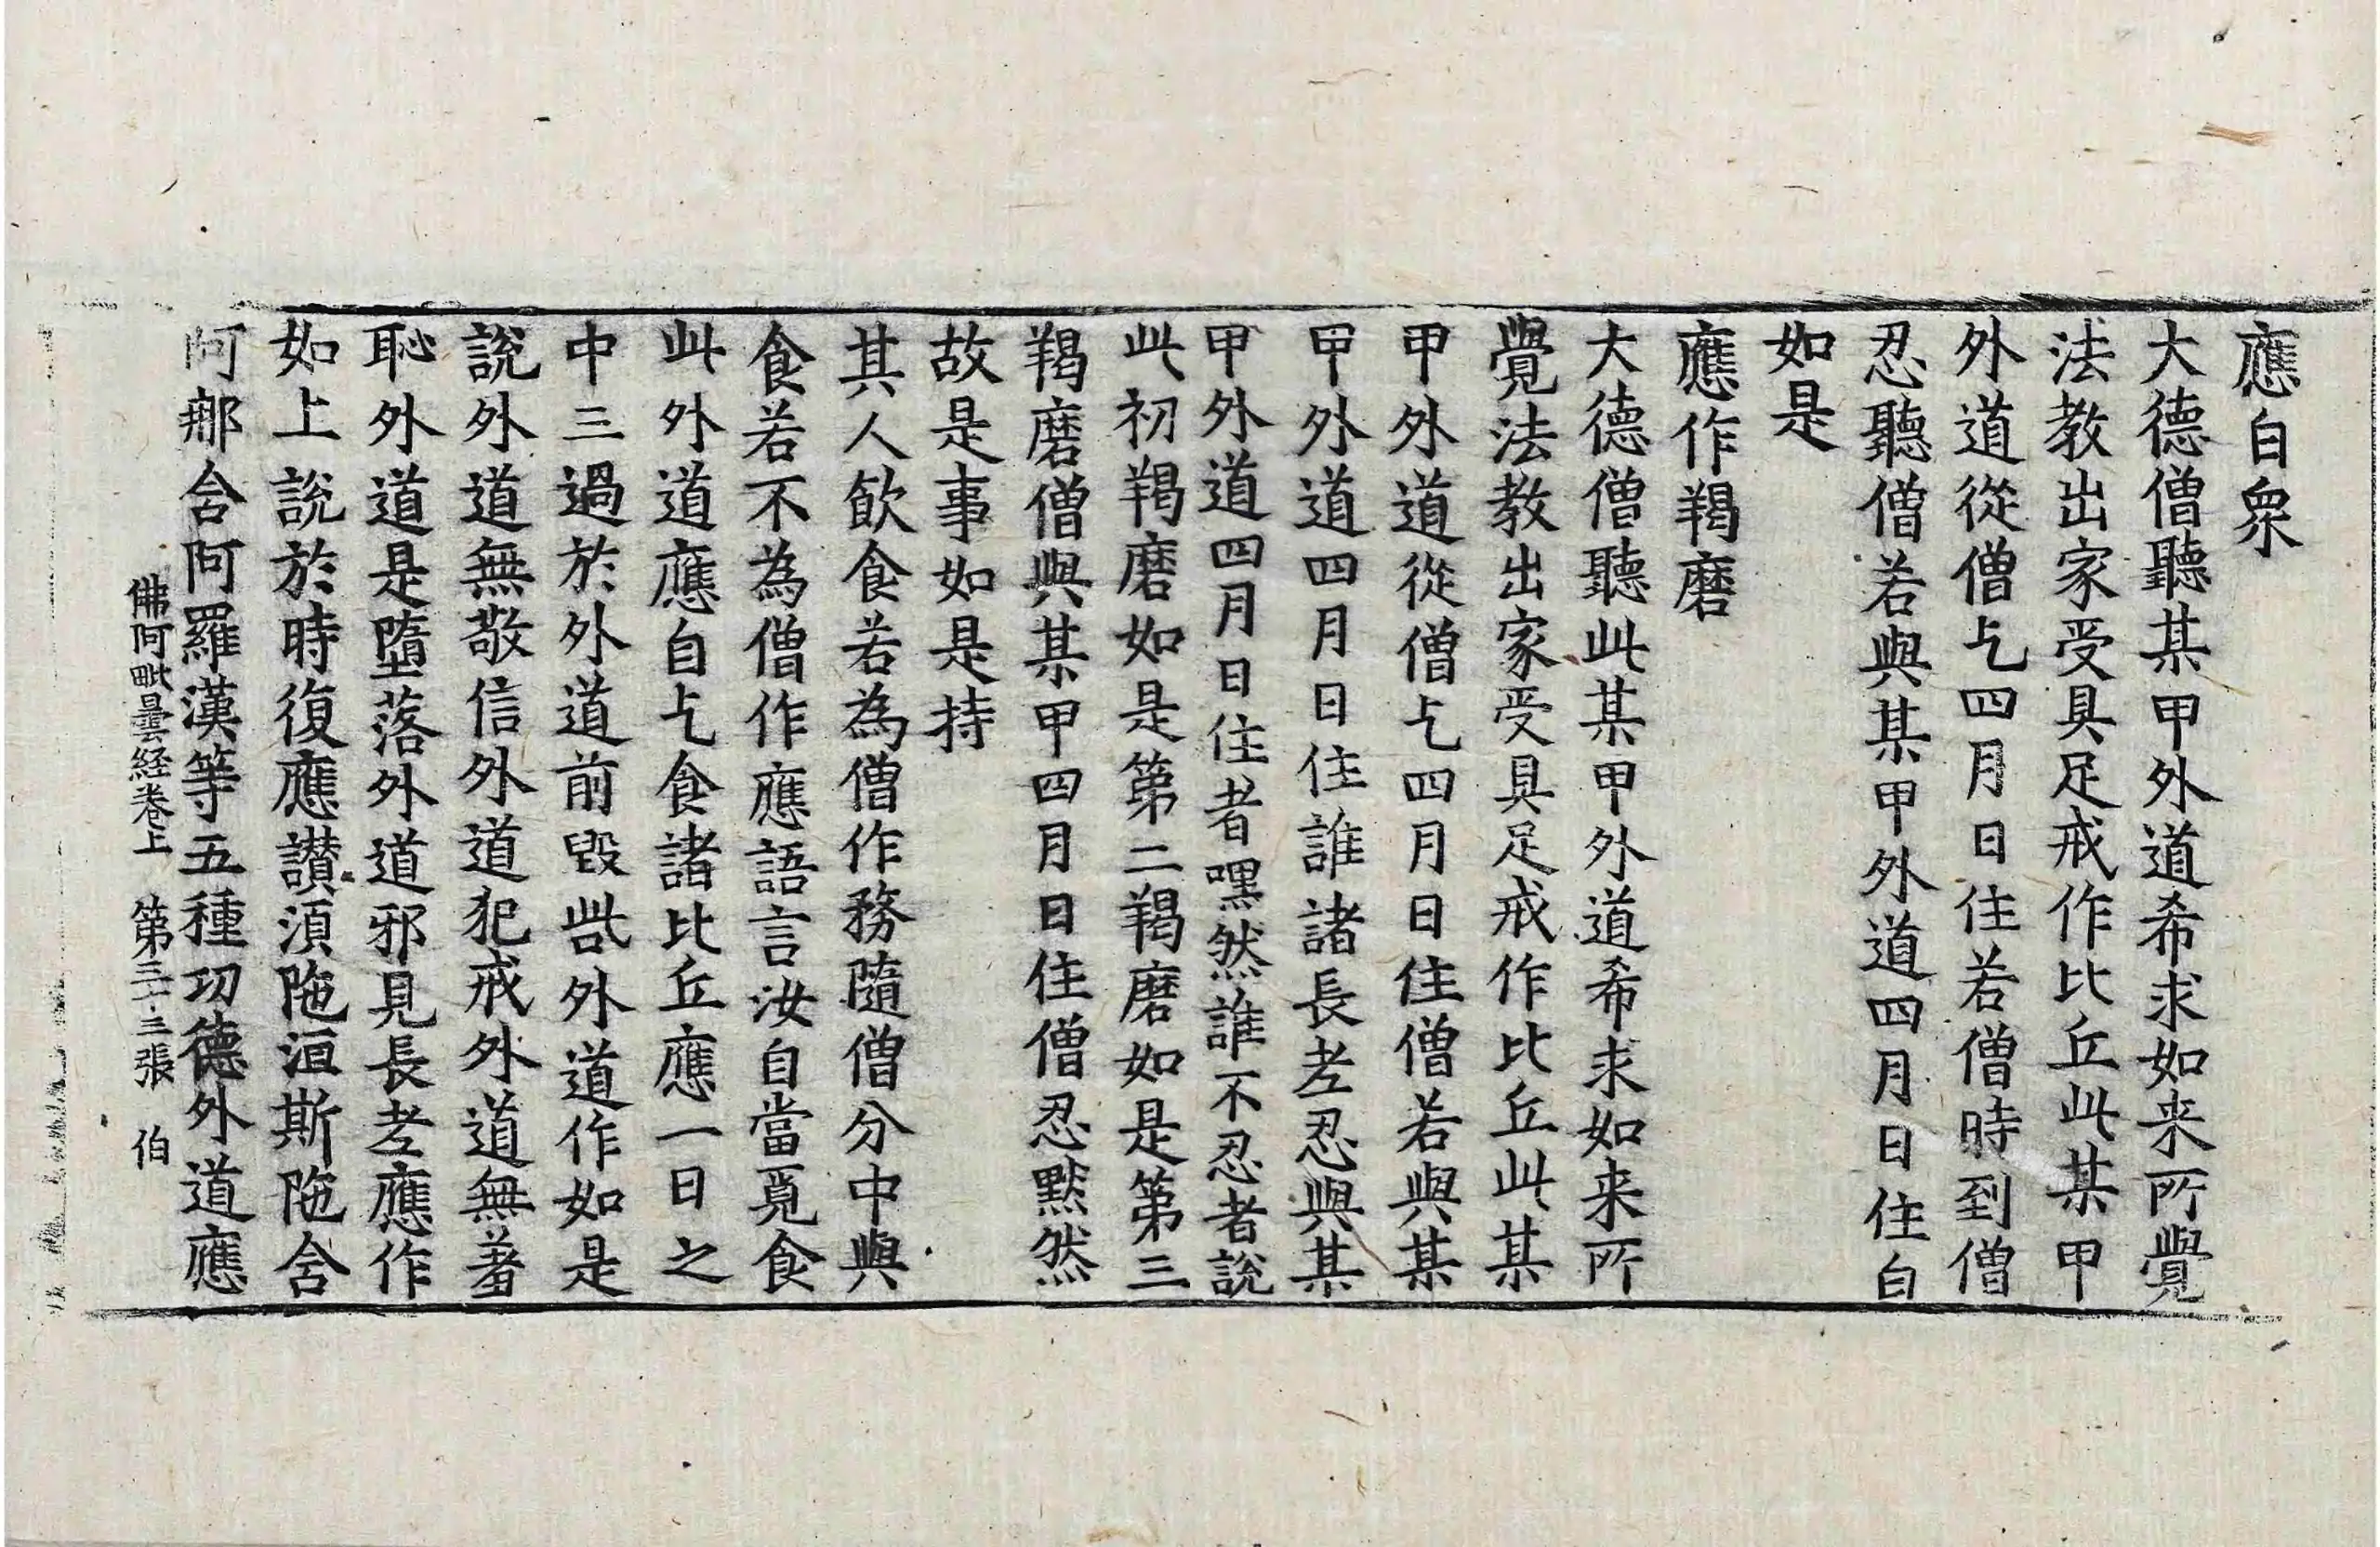 應白衆
大德僧聽某甲外道希求如来所覺
法教出家受具足戒作比丘此某甲
外道從僧乞四月日住若僧時到僧
忍聽僧若與某甲外道四月日住白
如是
應作羯磨
大德僧聽此某甲外道希求如来所
覺法教出家受具足戒作比丘此某
甲外道從僧乞四月日住僧若與某
甲外道四月日住誰諸長老忍與某
甲外道四月日住者嘿然誰不忍者說
此初羯磨如是第二羯磨如是第三
羯磨僧與某甲四月日住僧忍默然
故是事如是持
其人飲食若為僧作務隨僧分中與
食若不為僧作應語言汝自當覓食
此外道應自乞食諸比丘應一日之
中三過於外道前毀呰外道作如是
說外道無敬信外道犯戒外道無羞
恥外道是墮落外道邪見長老應作
如上說於時復應讃須陁洹斯陁含
阿那含阿羅漢等五種功德外道應
佛阿毗曇経卷上 第三十三張 伯